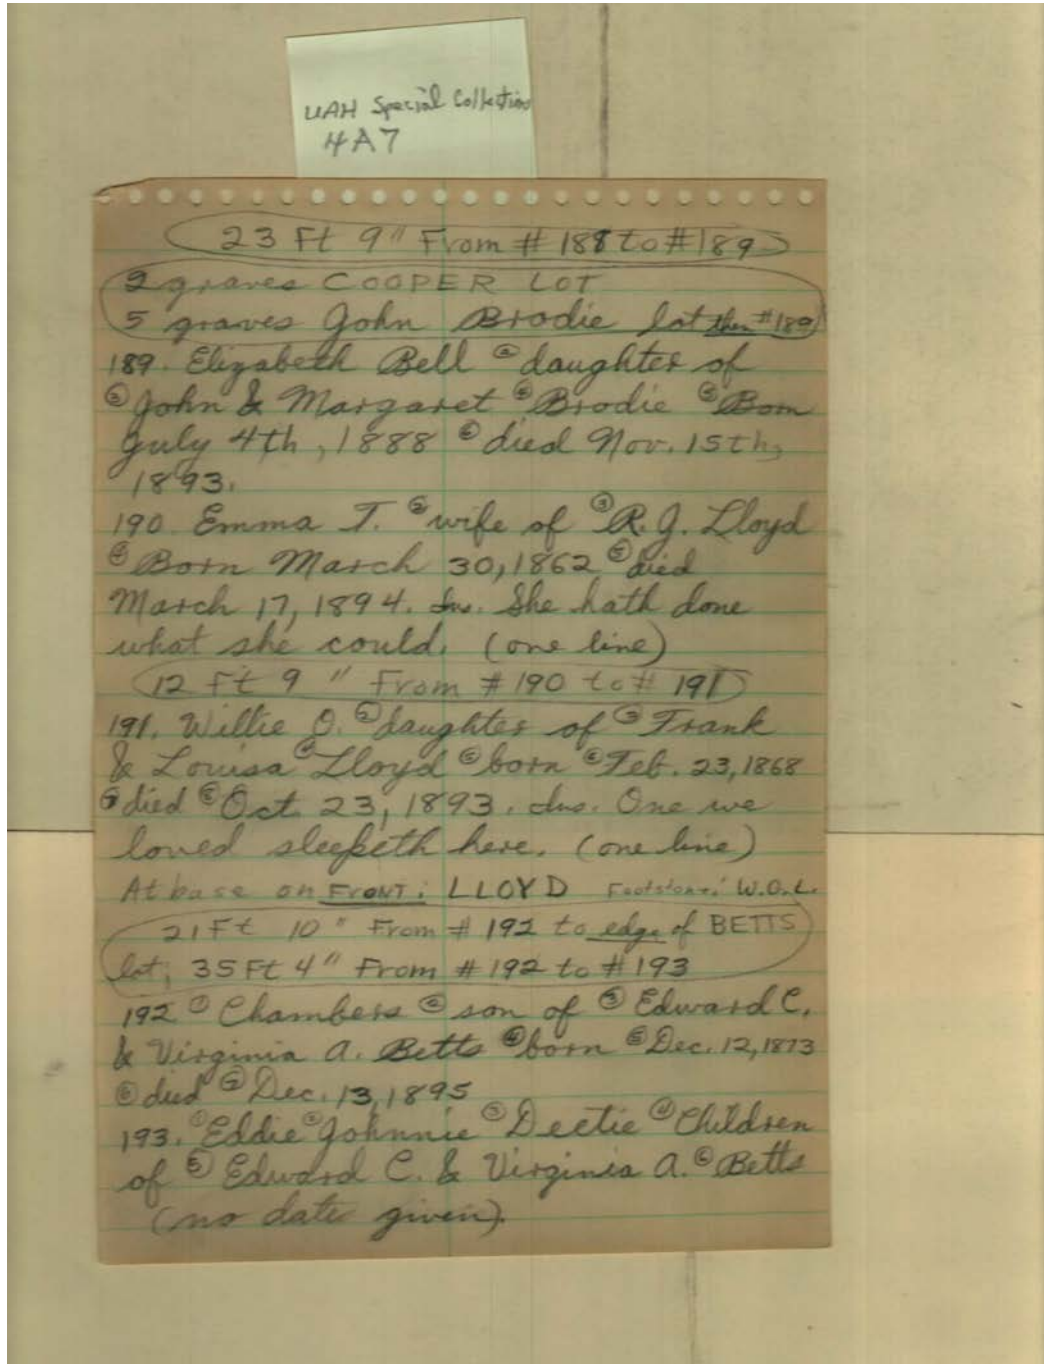 UAH Special Collections
4A7
23 Ft 9" From # 188 to # 189
2 graves COOPER LOT
5 graves John Brodie lot then # 189
189. Elizabeth Bell ② daughter of
③ John & Margaret ④ Brodie ⑤ Born
July 4th, 1888 ⑥ died Nov. 15th,
1893.
190. Emma T. ② wife of ③ R.J. Lloyd
④ Born March 30, 1862 ⑤ died
March 17, 1894. Ins. She hath done
what she could. (one line)
12 Ft 9 " From # 190 to # 191
191. Willie O. ② daughter of ③ Frank
& Louisa ④ Lloyd ⑤ born ⑥ Feb. 23, 1868
⑦ died ⑧ Oct. 23, 1893. Ins. One we
loved sleepeth here. (one line)
At base on FRONT: LLOYD Footstone: W.O.L.
21 Ft 10 " From # 192 to edge of BETTS
lot; 35 Ft 4" From # 192 to # 193
192 ① Chambers ② son of ③ Edward C.
& Virginia A. Betts ④ born ⑤ Dec. 12, 1873
⑥ died ⑦ Dec. 13, 1895
193. ① Eddie ② Johnnie ③ Deetie ④ Children
of ⑤ Edward C. & Virginia A. ⑥ Betts
(no date given).